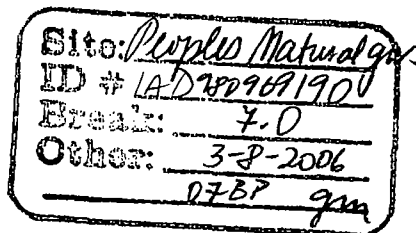 Site: Peoples Natural gas
ID # IAD980969190
Break: 7.0
Other: 3-8-2006
07BP gm